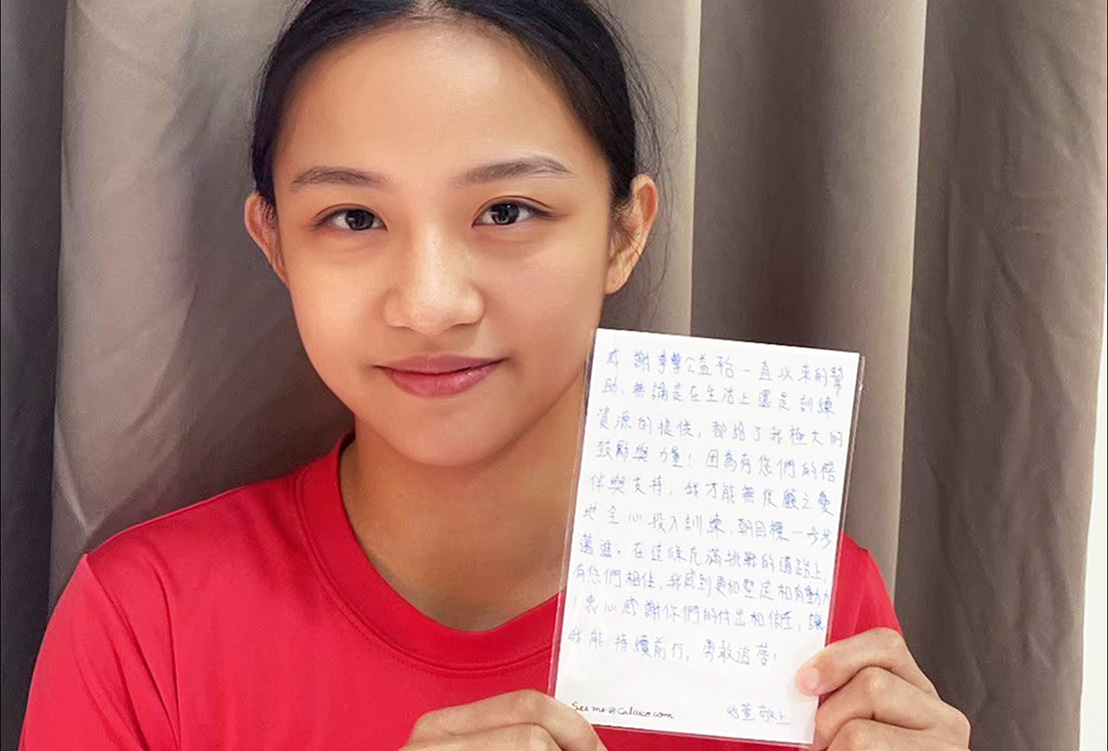 感謝享學公益平台一直以來的幫
助，無論是在生活上還是訓練
資源的提供，都給了我極大的
鼓勵與力量！因為有您們的陪
伴與支持，我才能無後顧之憂
地全心投入訓練，朝目標一步步
邁進。在這條充滿挑戰的道路上，
有您們相伴，我感到更加堅定和有動力
！衷心感謝你們的付出和信任，讓
我能持續前行，勇敢追夢！
See me@Caluco.com
萱 敬上